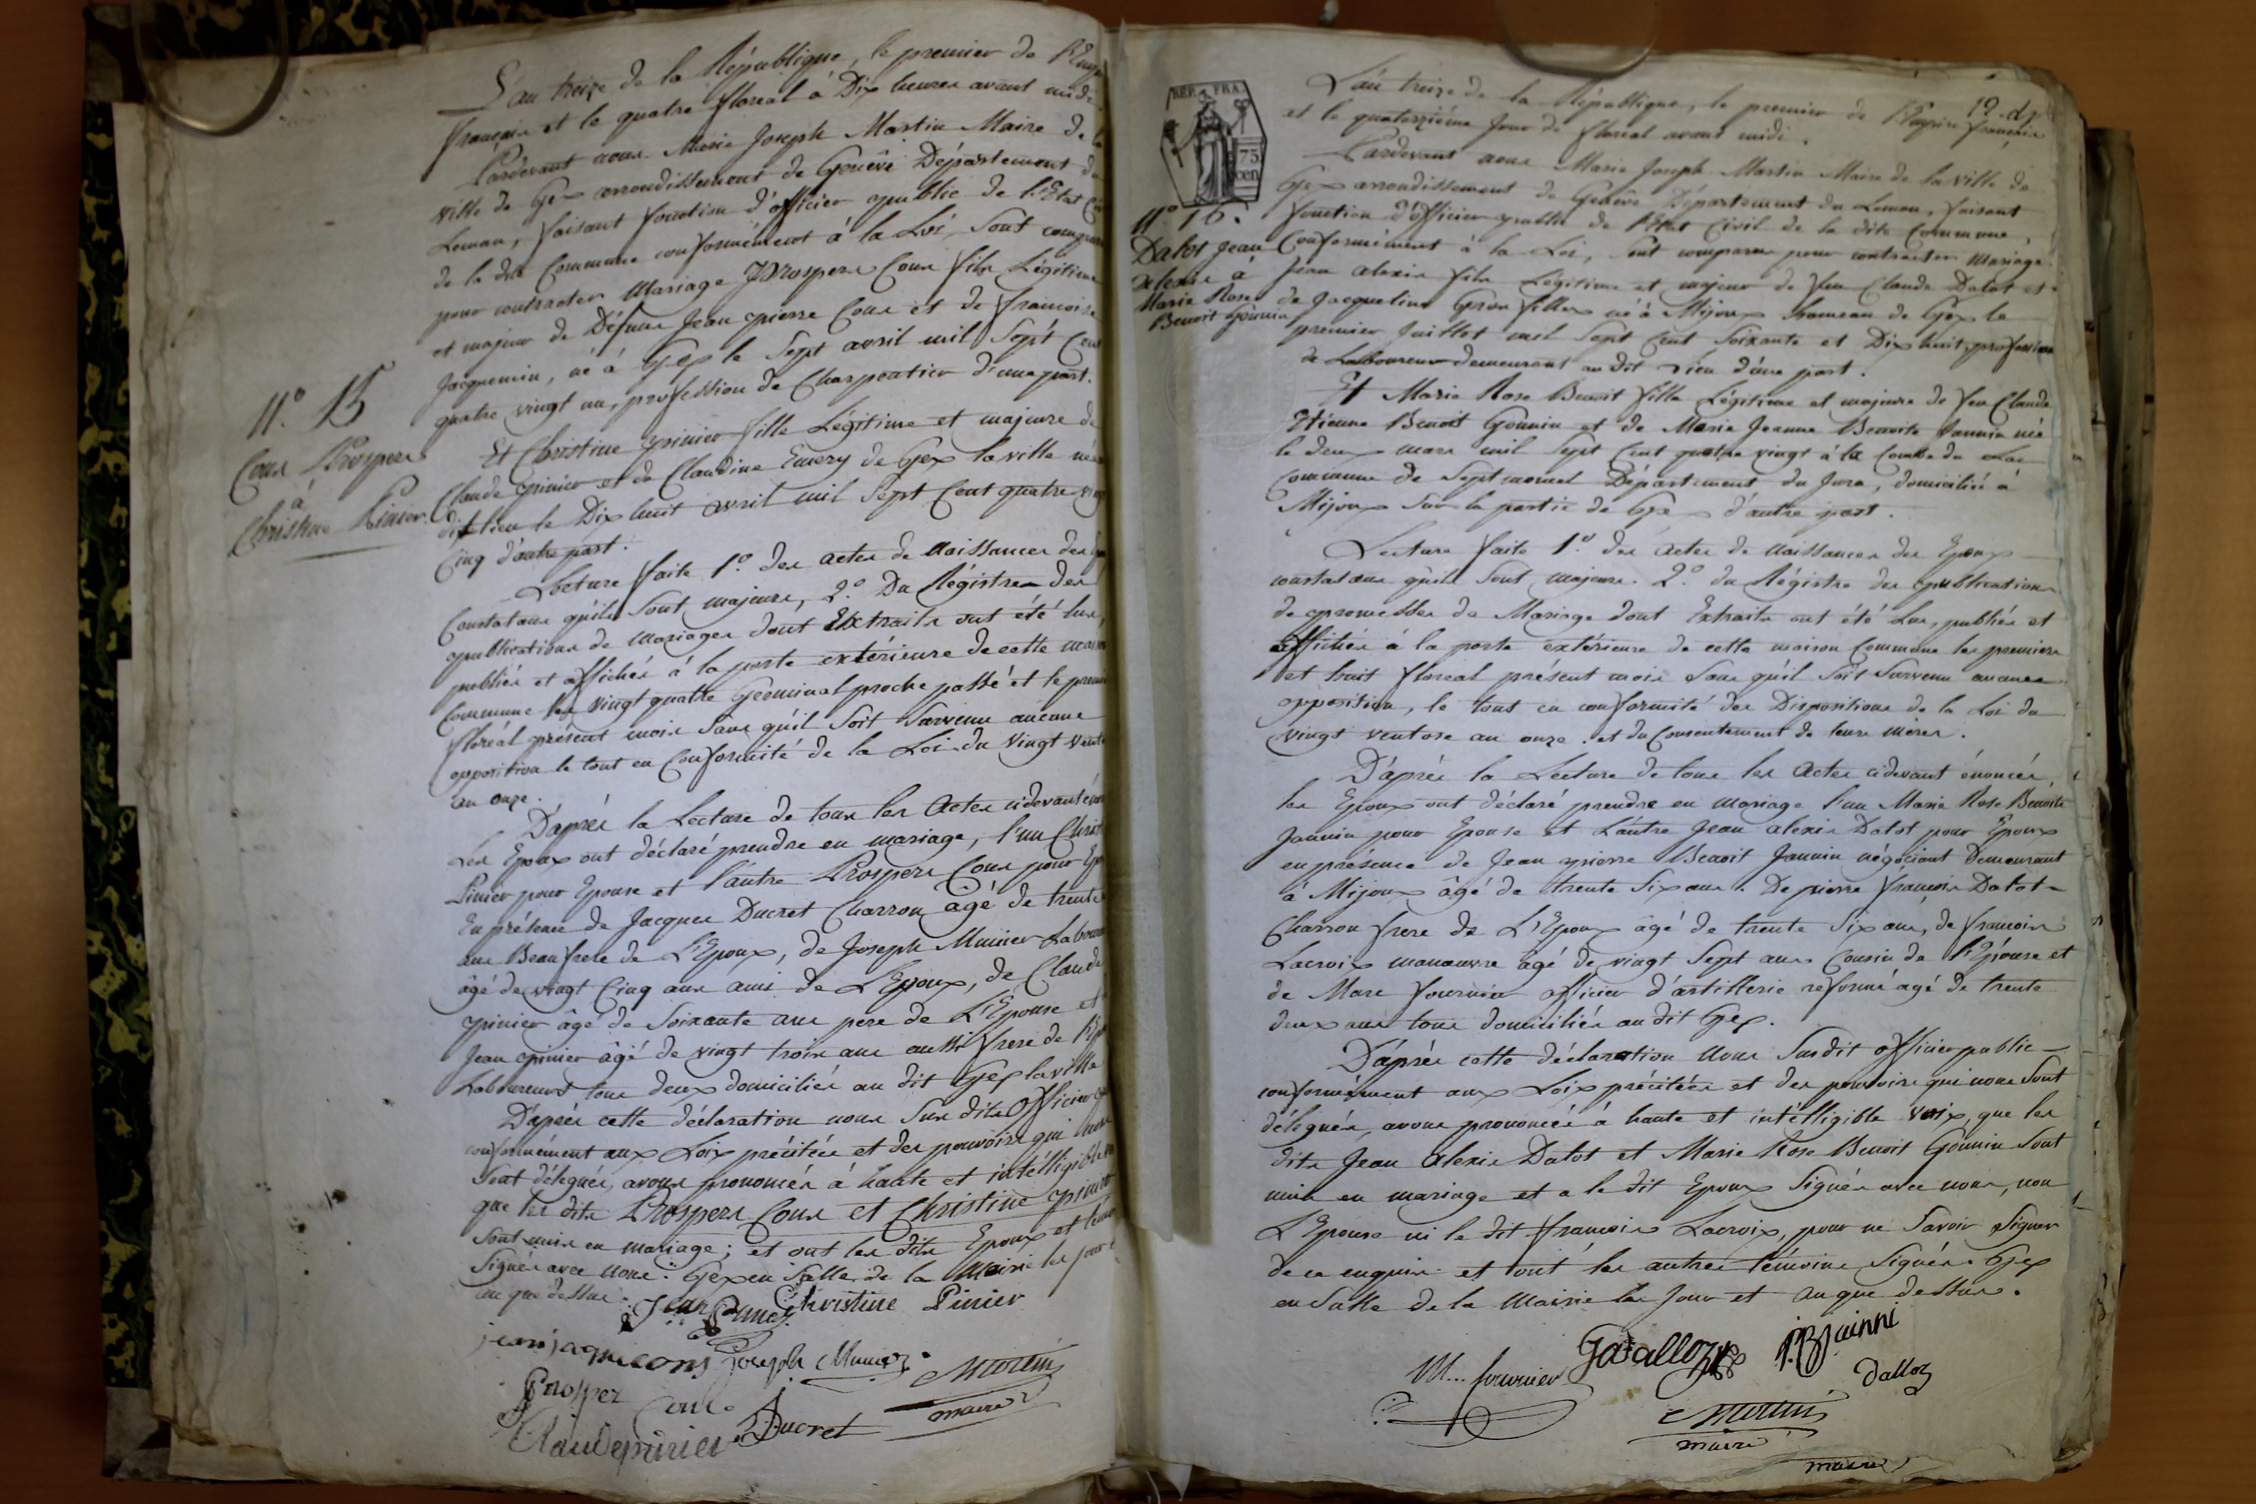 L'an treize de la République, le premier de l'Emp
français et le quatre floréal à Dix heures avant midi
Pardevant nous Marie Joseph Martin Maire de la
ville de Gex arrondissement de Genêve Département du
Leman, faisant fonction d'officier public de l'Etat Civ
de la dite Commune conformément à la Loi, Sont comparus
pour contracter Mariage Prospere Cons fils Légitime
et majeur de Défunt Jean pierre Cons et de francoise
Jacquemin, né à Gex le Sept avril mil Sept Cent
quatre vingt un, profession de Charpentier d'une part.
N.º 15
Cons Prospere
à
Christine Pinier
Et Christine pinier fille Légitime et majeure de
Claude pinier et de Claudine Emery de Gex la ville née
dit lieu le Dix huit avril mil Sept Cent quatre ving
Cinq d'autre part.
Lecture faite 1.º des actes de Naissances des
Constatans qu'ils Sont majeurs, 2.º Du Régistre des
publications de mariages dont Extraits ont été lus,
publiés et affichés à la porte extérieure de cette maison
Commune les vingt quatre Germinal proche passé et le premier
floréal présent mois Sans qu'il Soit Survenu aucune
opposition le tout en Conformité de la Loi du Vingt Ventô
an onze.
D'après la Lecture de tous les Actes cidevant én
Les Epoux ont déclaré prendre en mariage, l'un Christ
Pinier pour Epouse et l'autre Prospere Cons pour Ep
En présence de Jacques Ducret Charron âgé de trente
ans Beaufrere de L'Epoux, de Joseph Munier Labour
âgé de vingt Cinq ans ami de L'Epoux, de Claude
pinier âgé de Soixante ans pere de L'Epouse et
Jean pinier âgé de vingt trois ans aussi frere de l'Ep
Laboureurs tous deux domiciliés au dit Gex la ville
D'après cette déclaration nous Sus dits Officier
conformément aux Loix précitées et des pouvoirs qui nous
Sont délégués, avons prononcés à haute et intélligible
que les dits Prospere Cons et Christine pinier
Sont unis en mariage; et ont les dits Epoux et temo
Signés avec Nous. Gex en Salle de la Mairie les jour
an que dessus.
Christine Pinier
jean jaque cons Joseph Munier
Martin
maire
Prosper Cons
Claude pinier Ducret
REP. FRA.
75
cen
L'an treize de la République, le premier de l'Empire français
et le quatorzième Jour de floréal avant midi.
Pardevant nous Marie Joseph Martin Maire de la Ville de
Gex arrondissement de Genêve Département du Leman, faisant
fonction d'officier public de l'Etat Civil de la dite Commune,
Conformément à la Loi, Sont comparus pour contracter Mariage
Jean alexis fils Légitime et majeur de feu Claude Dalot et
de Jacqueline Gros fillex né à Mijoux hameau de Gex le
premier Juillet mil Sept Cent Soixante et Dix huit, profession
de Laboureur demeurant au dit Lieu d'une part.
N.º 16.
Dalot Jean
alexis à
Marie Rose
Benoit Gonnin
Et Marie Rose Benoit fille Légitime et majeure de feu Claude
Etienne Benoit Gonnin et de Marie Jeanne Benoite Jannin née
le deux mars mil Sept Cent quatre vingt à la Combe du Lac
Commune de Septmoncel Département du Jura, domiciliée à
Mijoux Sur la partie de Gex d'autre part.
Lecture faite 1.º des actes de Naissances des Epoux
constatans qu'ils Sont majeurs. 2.º du Régistre des publications
de promesses de Mariage dont Extraits ont été Lus, publiés et
affichés à la porte extérieure de cette maison Commune les premiers
et huit floréal présent mois Sans qu'il Soit Survenu aucune
opposition, le tout en conformité des Dispositions de la Loi du
vingt ventose an onze. et du Consentement de leurs mères.
D'après la Lecture de tous les Actes cidevant énoncés,
les Epoux ont déclaré prendre en mariage l'un Marie Rose Benoite
Jannin pour Epouse et L'autre Jean alexis Dalot pour Epoux
en présence de Jean pierre Benoit Jannin négociant Demeurant
à Mijoux âgé de trente Six ans. De pierre françois Dalot
Charron frere de L'Epoux âgé de trente Six ans, de francois
Lacroix manœuvre âgé de vingt Sept ans Cousin de l'Epouse et
de Marc fournier officier d'artillerie réformé agé de trente
deux ans tous domiciliés au dit Gex.
D'après cette déclaration Nous Susdit officier public
conformément aux Loix précitées et des pouvoirs qui nous Sont
délégués, avons prononcés à haute et intélligible voix, que les
dits Jean alexis Dalot et Marie Rose Benoit Gonnin Sont
unis en mariage et a le dit Epoux Signés avec nous, non
L'Epouse ni le dit francois Lacroix, pour ne Savoir Signer
de ce enquis. et ont les autres témoins Signés. Gex
en Salle de la Mairie les Jour et an que dessus.
M... fournier
Dalloz
Martin
maire
maire